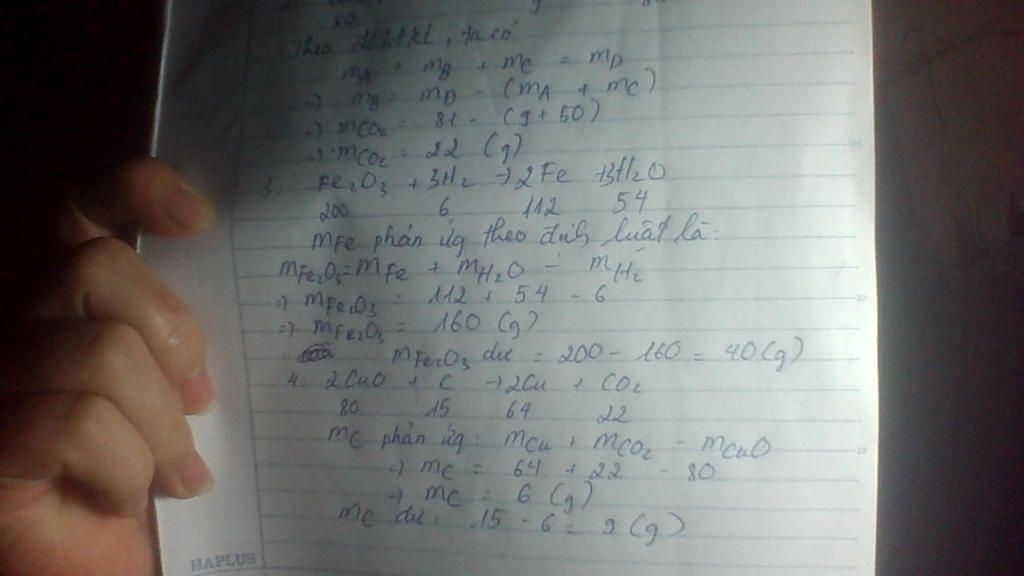 80
Theo ĐLBTKL, ta có
mA + mB + mC = mD
=> mB = mD - (mA + mC)
=> mCO2 = 81 - (9 + 50)
=> mCO2 = 22 (g)
3: Fe2O3 + 3H2 -> 2Fe + 3H2O
200 6 112 54
mFe phản ứg theo định luật là:
mFe2O3 = mFe + mH2O - mH2
=> mFe2O3 = 112 + 54 - 6
=> mFe2O3 = 160 (g)
mFe2O3 dư = 200 - 160 = 40 (g)
4: 2CuO + C -> 2Cu + CO2
80 15 64 22
mC phản ứg: mCu + mCO2 - mCuO
=> mC = 64 + 22 - 80
=> mC = 6 (g)
mC dư: 15 - 6 = 9 (g)
HAPLUS